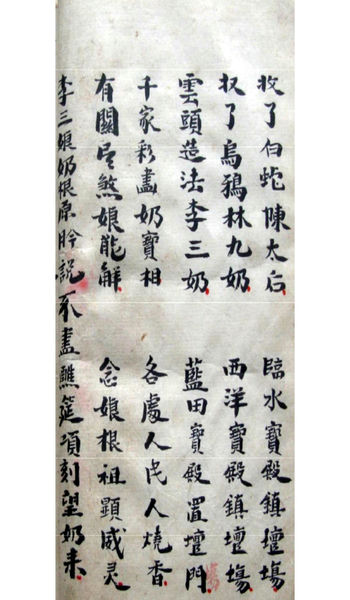 收了白蛇陳太后 臨水寶殿鎮壇塲
収了烏鴉林九奶 西洋寶殿鎮壇塲
雲頭造法李三奶 藍田寶殿置壇門
千家彩盡奶寶相 各處人民人燒香
有關煞娘能觧 念娘根祖顯威灵
李三娘奶根原説不盡醮筵項刻望奶来